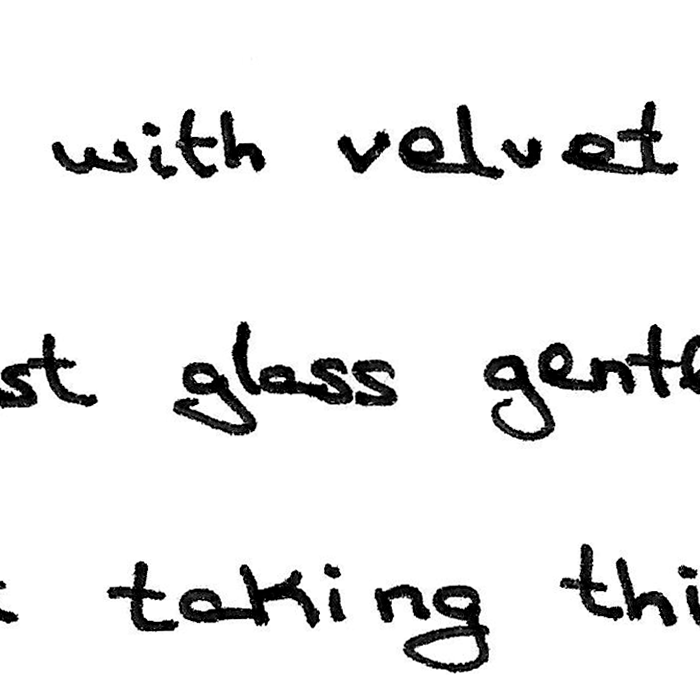 with velvet
st glass gentl
taking thi